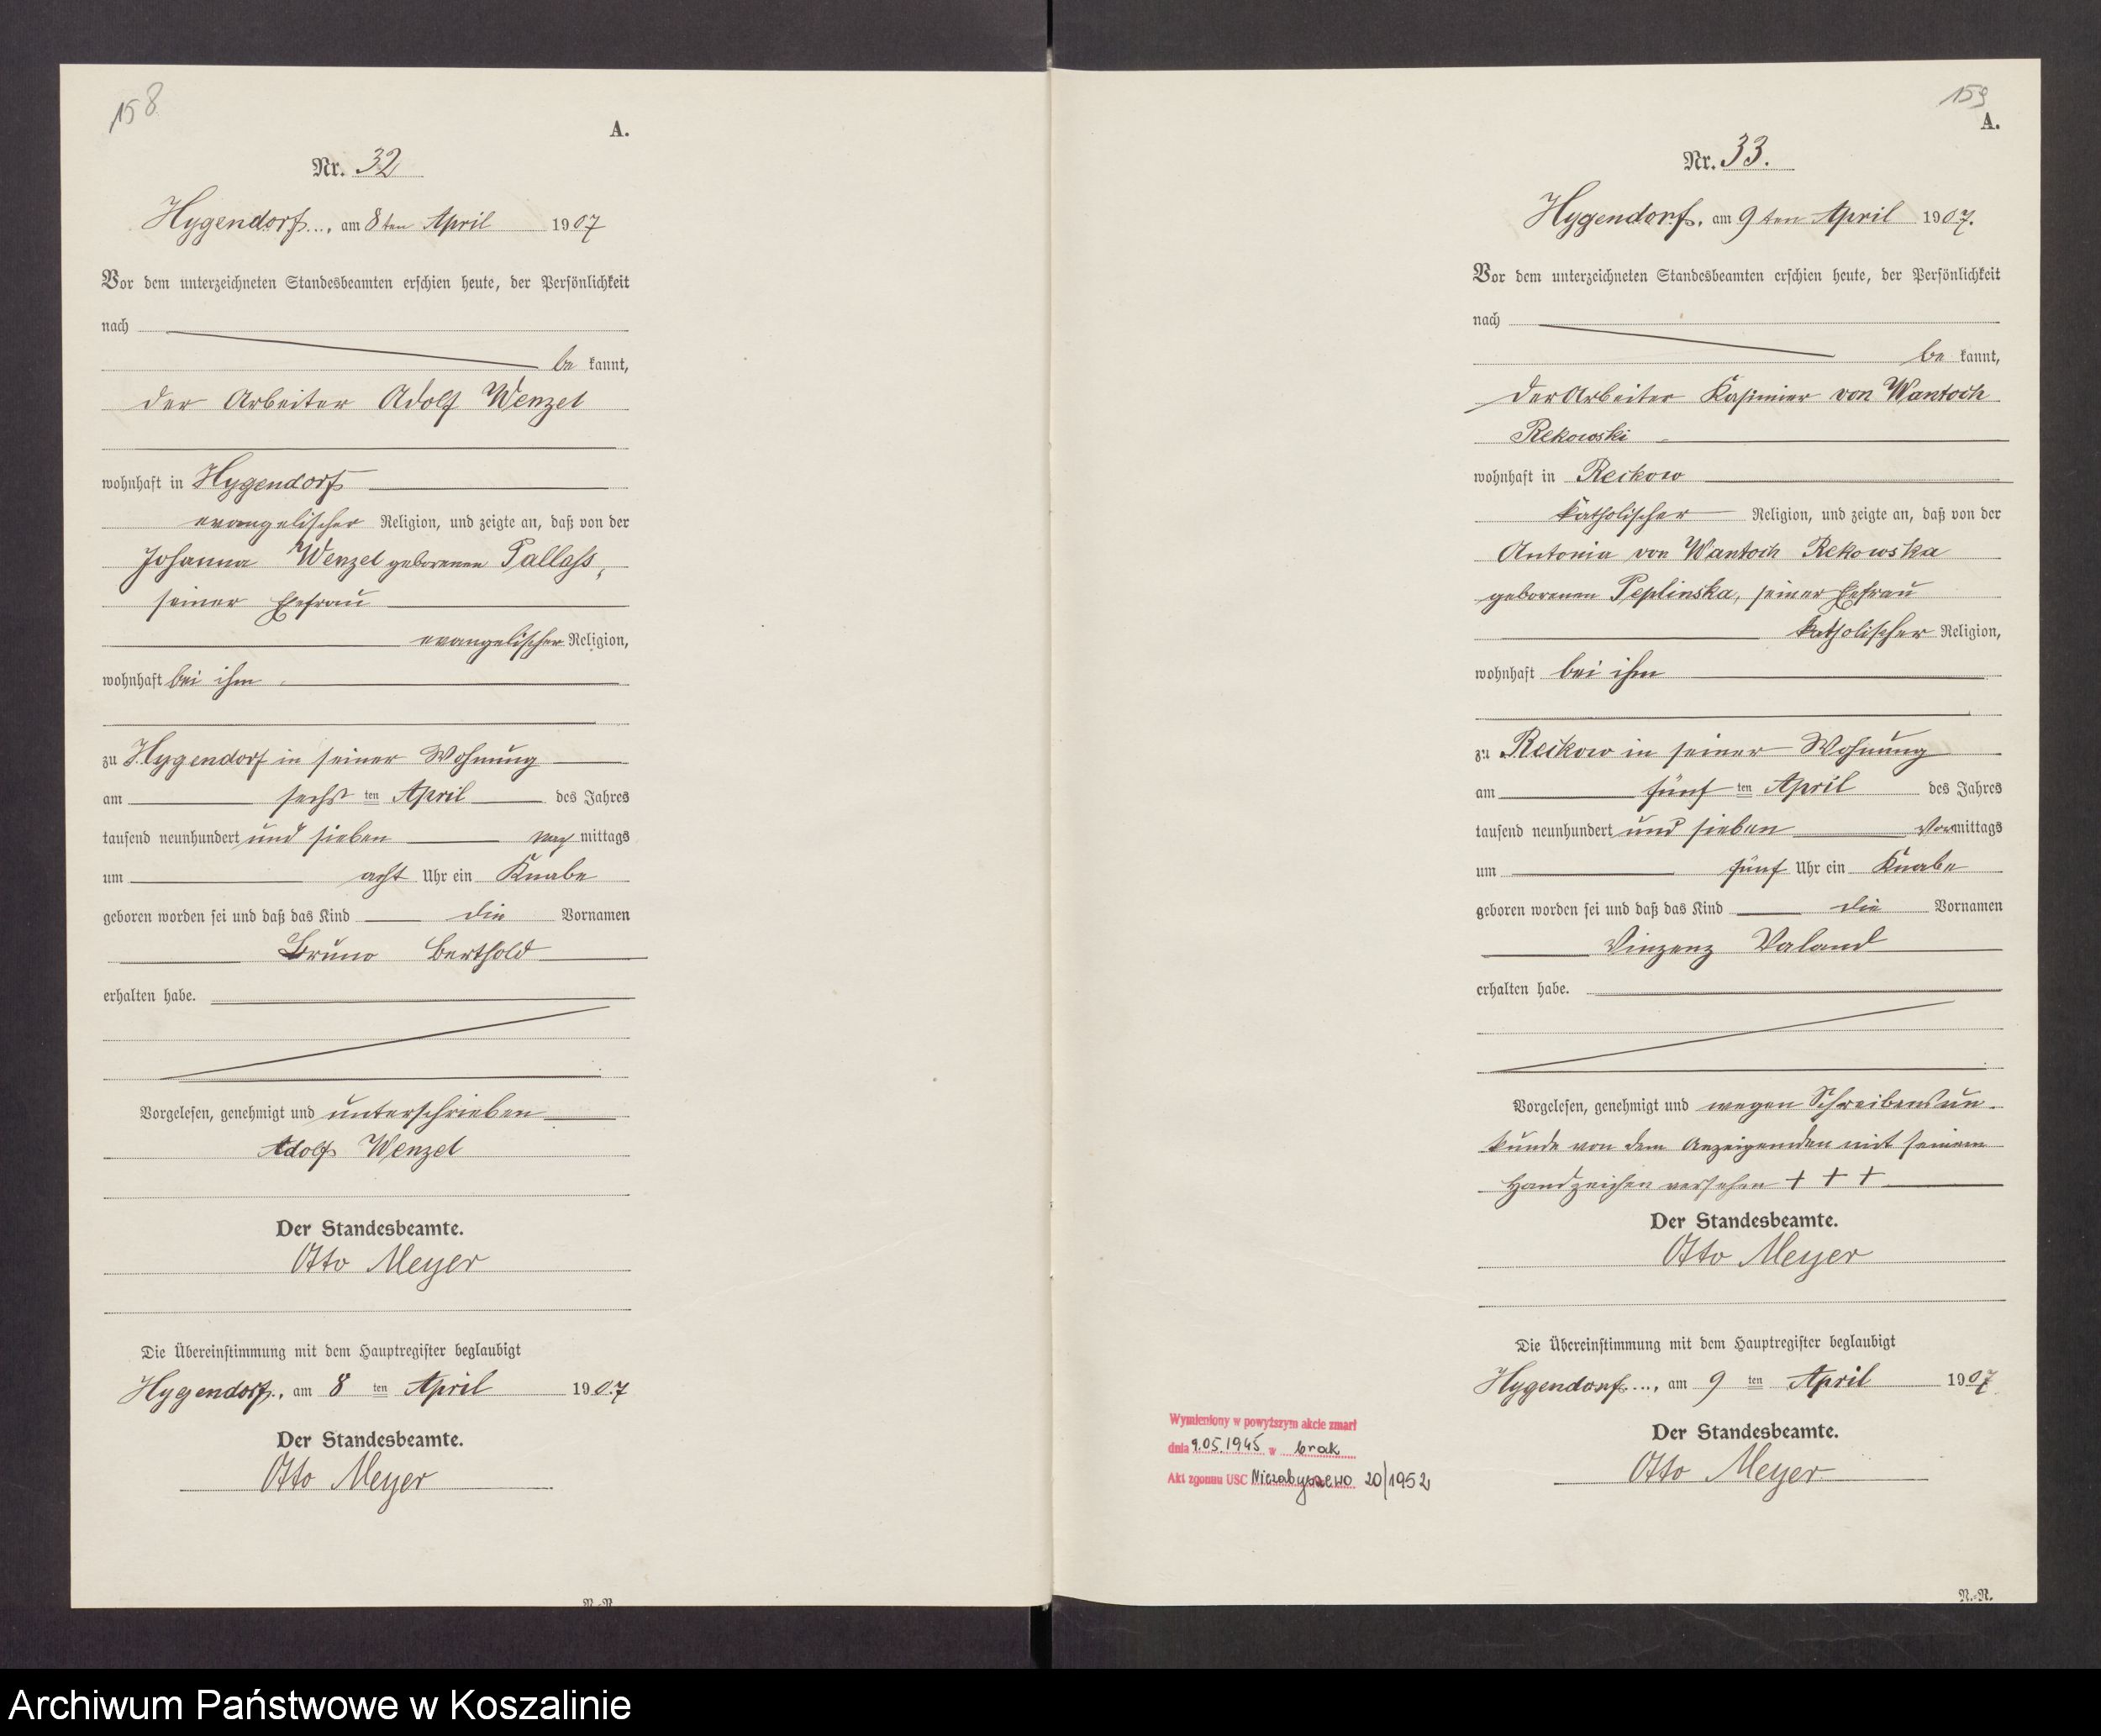 158
A.
Nr. 32
Hygendorf..., am 8ten April 1907
Vor dem unterzeichneten Standesbeamten erschien heute, der Persönlichkeit
nach
be kannt,
der Arbeiter Adolf Wenzel
wohnhaft in Hygendorf
evangelischer Religion, und zeigte an, daß von der
Johanna Wenzel geborenen Pallass,
seiner Ehefrau
evangelischer Religion,
wohnhaft bei ihm
zu Hygendorf in seiner Wohnung
am sechs ten April des Jahres
tausend neunhundert und sieben nach mittags
um acht Uhr ein Knabe
geboren worden sei und daß das Kind die Vornamen
Bruno Berthold
erhalten habe.
Vorgelesen, genehmigt und unterschrieben
Adolf Wenzel
Der Standesbeamte.
Otto Meyer
Die Übereinstimmung mit dem Hauptregister beglaubigt
Hygendorf., am 8 ten April 1907
Der Standesbeamte.
Otto Meyer
159
A.
Nr. 33.
Hygendorf, am 9ten April 1907.
Vor dem unterzeichneten Standesbeamten erschien heute, der Persönlichkeit
nach
be kannt,
der Arbeiter Kasimier von Wantoch
Rekowski
wohnhaft in Reckow
katholischer Religion, und zeigte an, daß von der
Antonia von Wantoch Rekowska
geborenen Peplinska, seiner Ehefrau
katholischer Religion,
wohnhaft bei ihm
zu Reckow in seiner Wohnung
am fünf ten April des Jahres
tausend neunhundert und sieben Vormittags
um fünf Uhr ein Knabe
geboren worden sei und daß das Kind die Vornamen
Vinzenz Valand
erhalten habe.
Vorgelesen, genehmigt und wegen Schreibensun-
kunde von dem Anzeigenden mit seinem
Handzeichen versehen + + +
Der Standesbeamte.
Otto Meyer
Die Übereinstimmung mit dem Hauptregister beglaubigt
Hygendorf..., am 9 ten April 1907
Der Standesbeamte.
Otto Meyer
Wymieniony w powyższym akcie zmarł
dnia 9.05.1945 w brak
Akt zgonu USC Niezabyszewo 20/1952
N.-N.
N.-N.
Archiwum Państwowe w Koszalinie